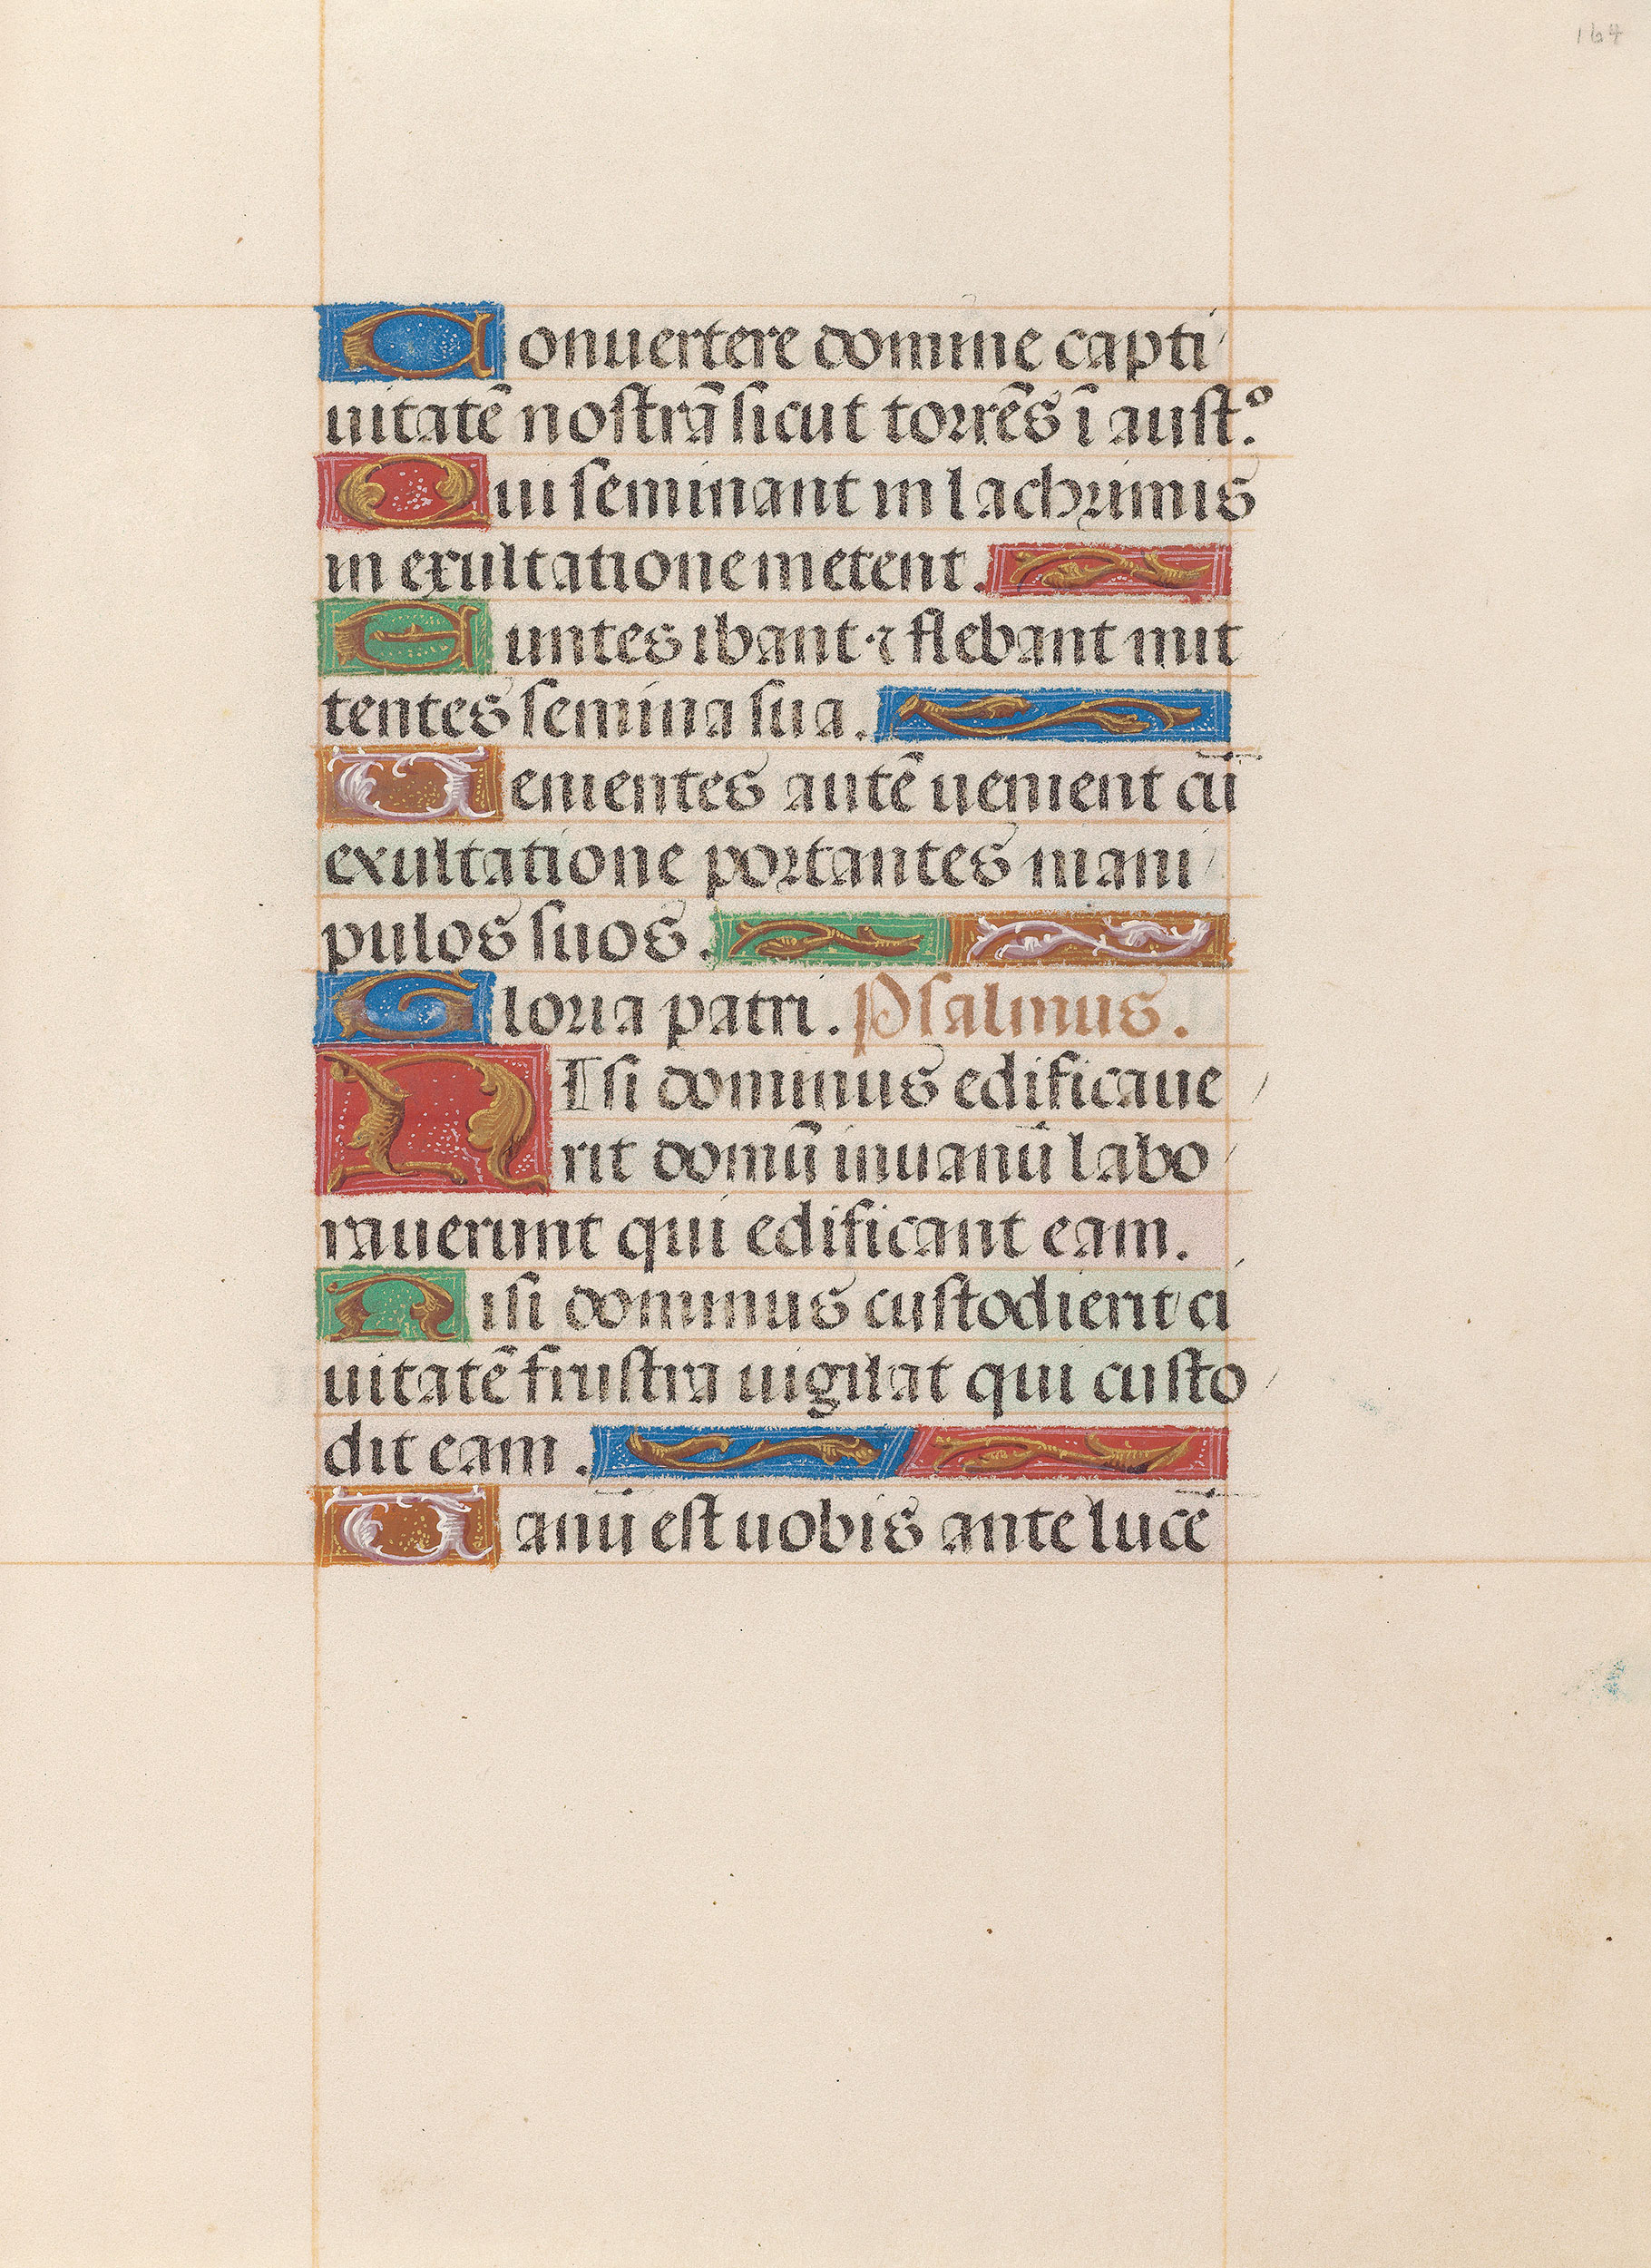 164
Conuertere domine capti
uitatē nostrā sicut torrēs ī aust.º
Qui seminant in lachrimis
in exultatione metent.
Euntes ibant · ⁊ flebant mit
tentes semina sua.
Uenientes autē uenient cū
exultatione portantes mani
pulos suos.
Gloria patri. Psalmus.
NIsi dominus edificaue
rit domū inuanū labo
rauerunt qui edificant eam.
Nisi dominus custodierit ci
uitatē frustra uigilat qui custo
dit eam.
Uanū est uobis ante lucē